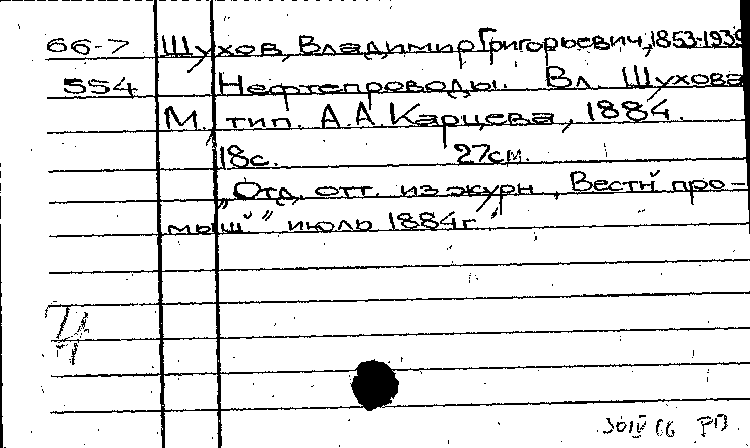 66-7 Шухов, Владимир Григорьевич, 1853-1939
554 Нефтепроводы. Вл. Шухова
М., тип. А.А. Карцева, 1884.
18с. 27см.
"Отд. отт. из журн. "Вестн. про-
мыш." июль 1884г."
30 IV 66